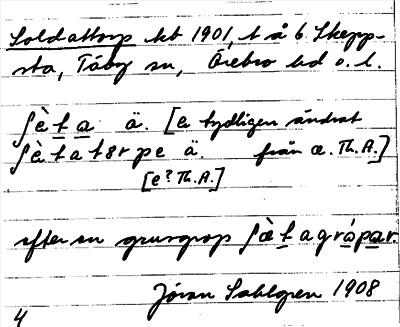 Soldattorp tkt 1901, t å 6. Skepp-
sta, Täby sn, Örebro hd o. l.
ʃè t a ä. [e tydligen ändrat
ʃè t a t ɜ r p e ä. från æ. Th.A.]
[e? Th.A.]
efter en grusgrop ʃæ̀ t a g r ɷ́ p a r.
Jöran Sahlgren 1908
4